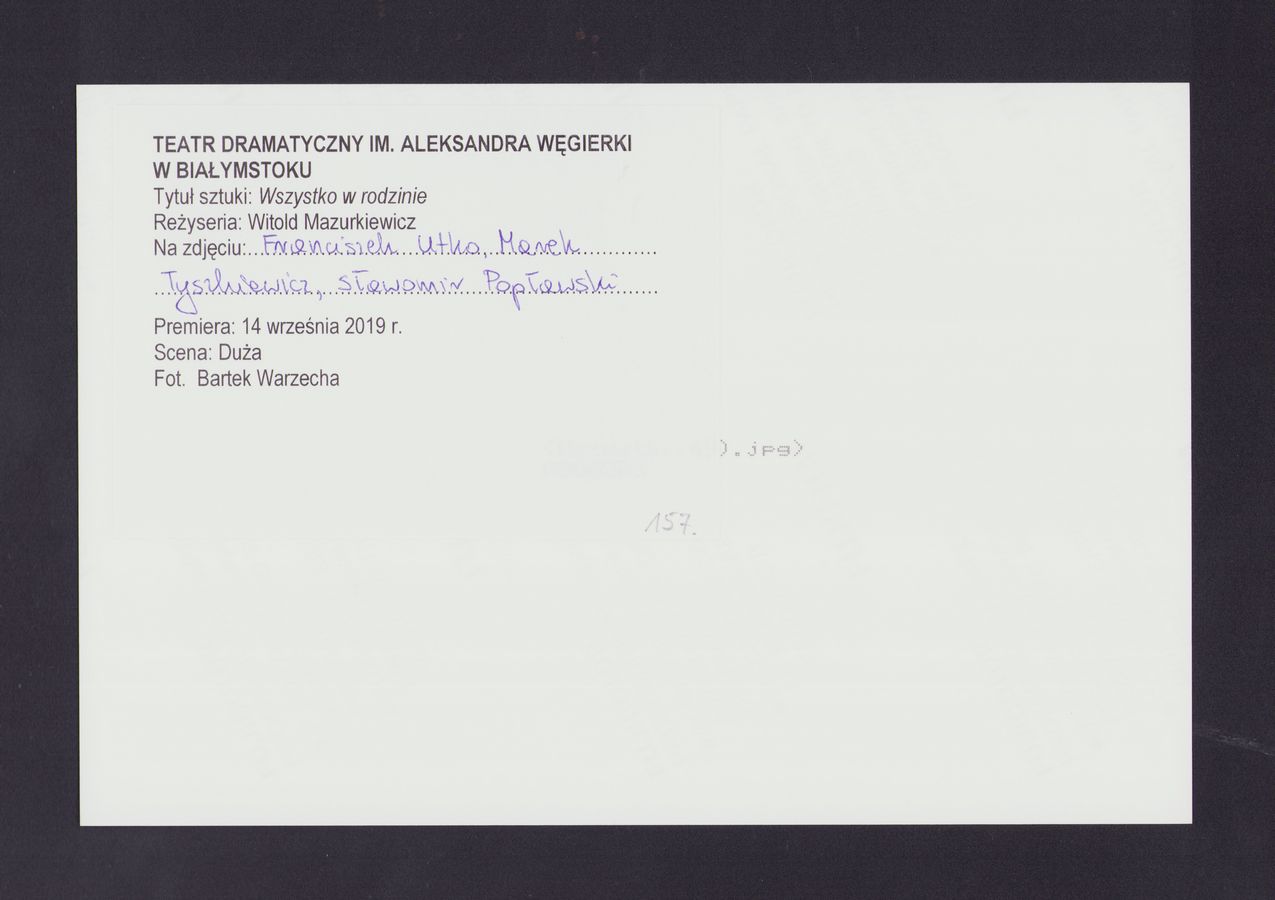 TEATR DRAMATYCZNY IM. ALEKSANDRA WĘGIERKI
W BIAŁYMSTOKU
Tytuł sztuki: Wszystko w rodzinie
Reżyseria: Witold Mazurkiewicz
Na zdjęciu:...Franciszek Utko, Marek............
Tyszkiewicz, Sławomir Popławski......
Premiera: 14 września 2019 r.
Scena: Duża
Fot. Bartek Warzecha
).jpg)
157.